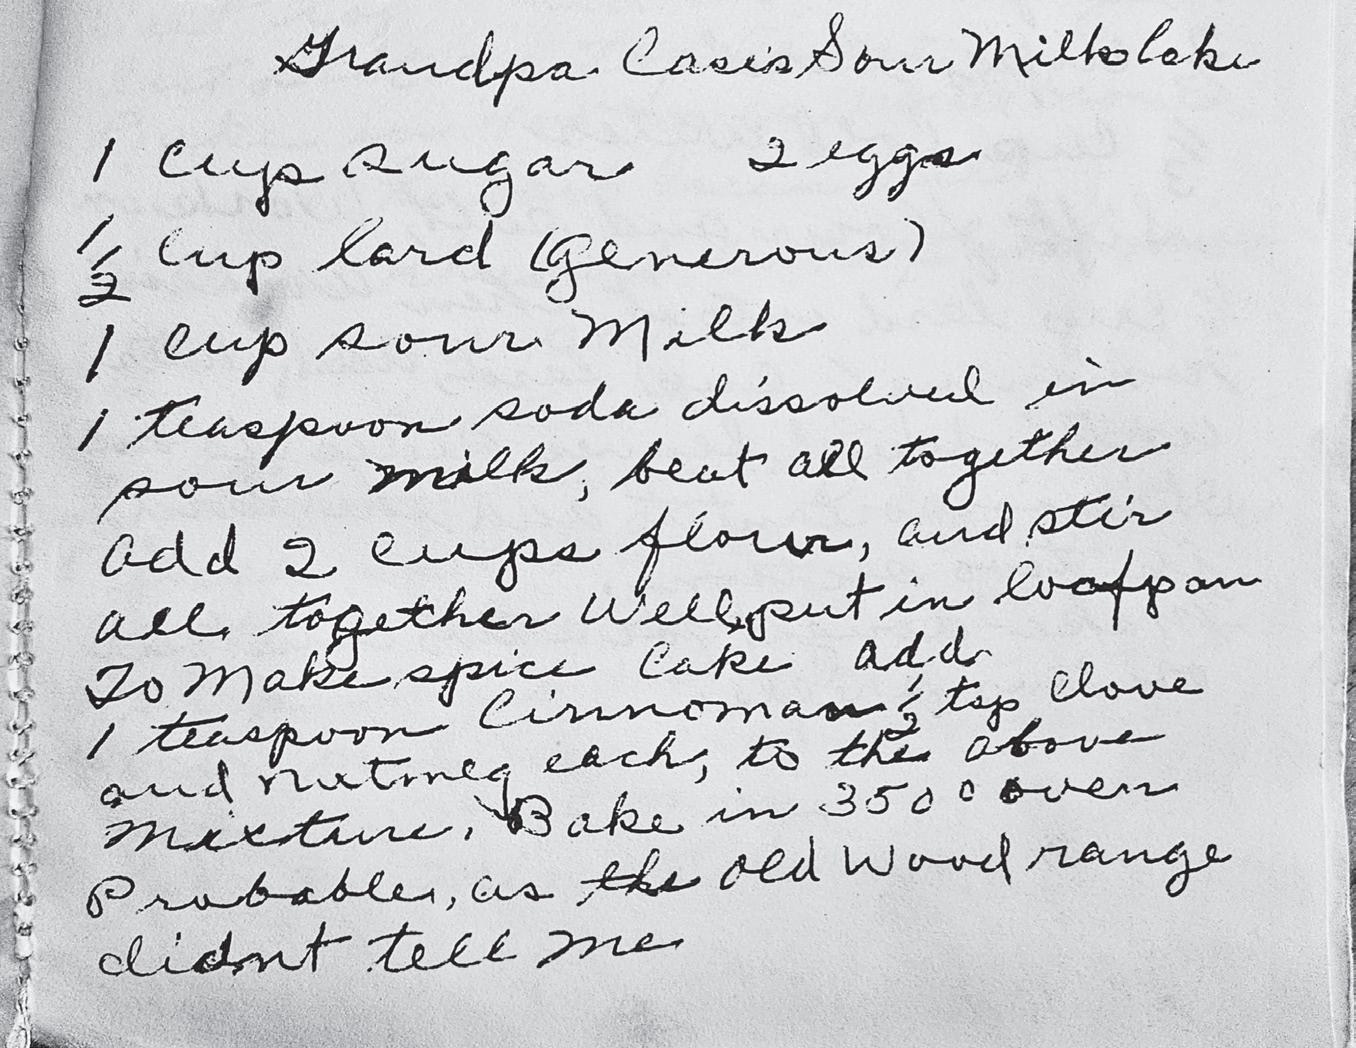 Grandpa Case's Sour Milk Cake
1 cup sugar 2 eggs
1/2 Cup lard (Generous)
1 cup sour Milk
1 teaspoon soda dissolved in
sour milk, beat all together
add 2 cups flour, and stir
all together Well, put in loaf pan
To Make spice Cake add
1 teaspoon Cinnoman 1/2 tsp Clove
and nutmeg each, to the above
Mixture. Bake in 350° oven
Probable, as the old Wood range
didnt tell me